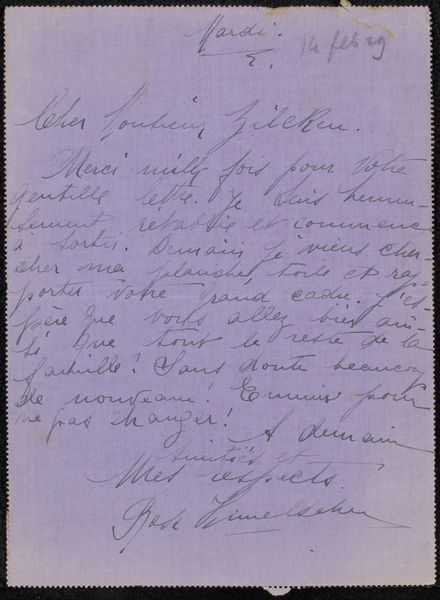 Mardi.
14 feb 29
Cher Monsieur Zilcken.
Merci mille fois pour votre
gentille lettre. Je suis heureu-
sement rétablie et commence
à sortir. Demain je viens cher-
cher ma planche toile et rap-
porter votre grand cadre. J'es-
père que vous allez bien ain-
si que tout le reste de la
famille! Sans doute beaucoup
de nouveau! Ennuis pour
ne pas changer!
A demain
Amitiés et
Mes respects.
Rose